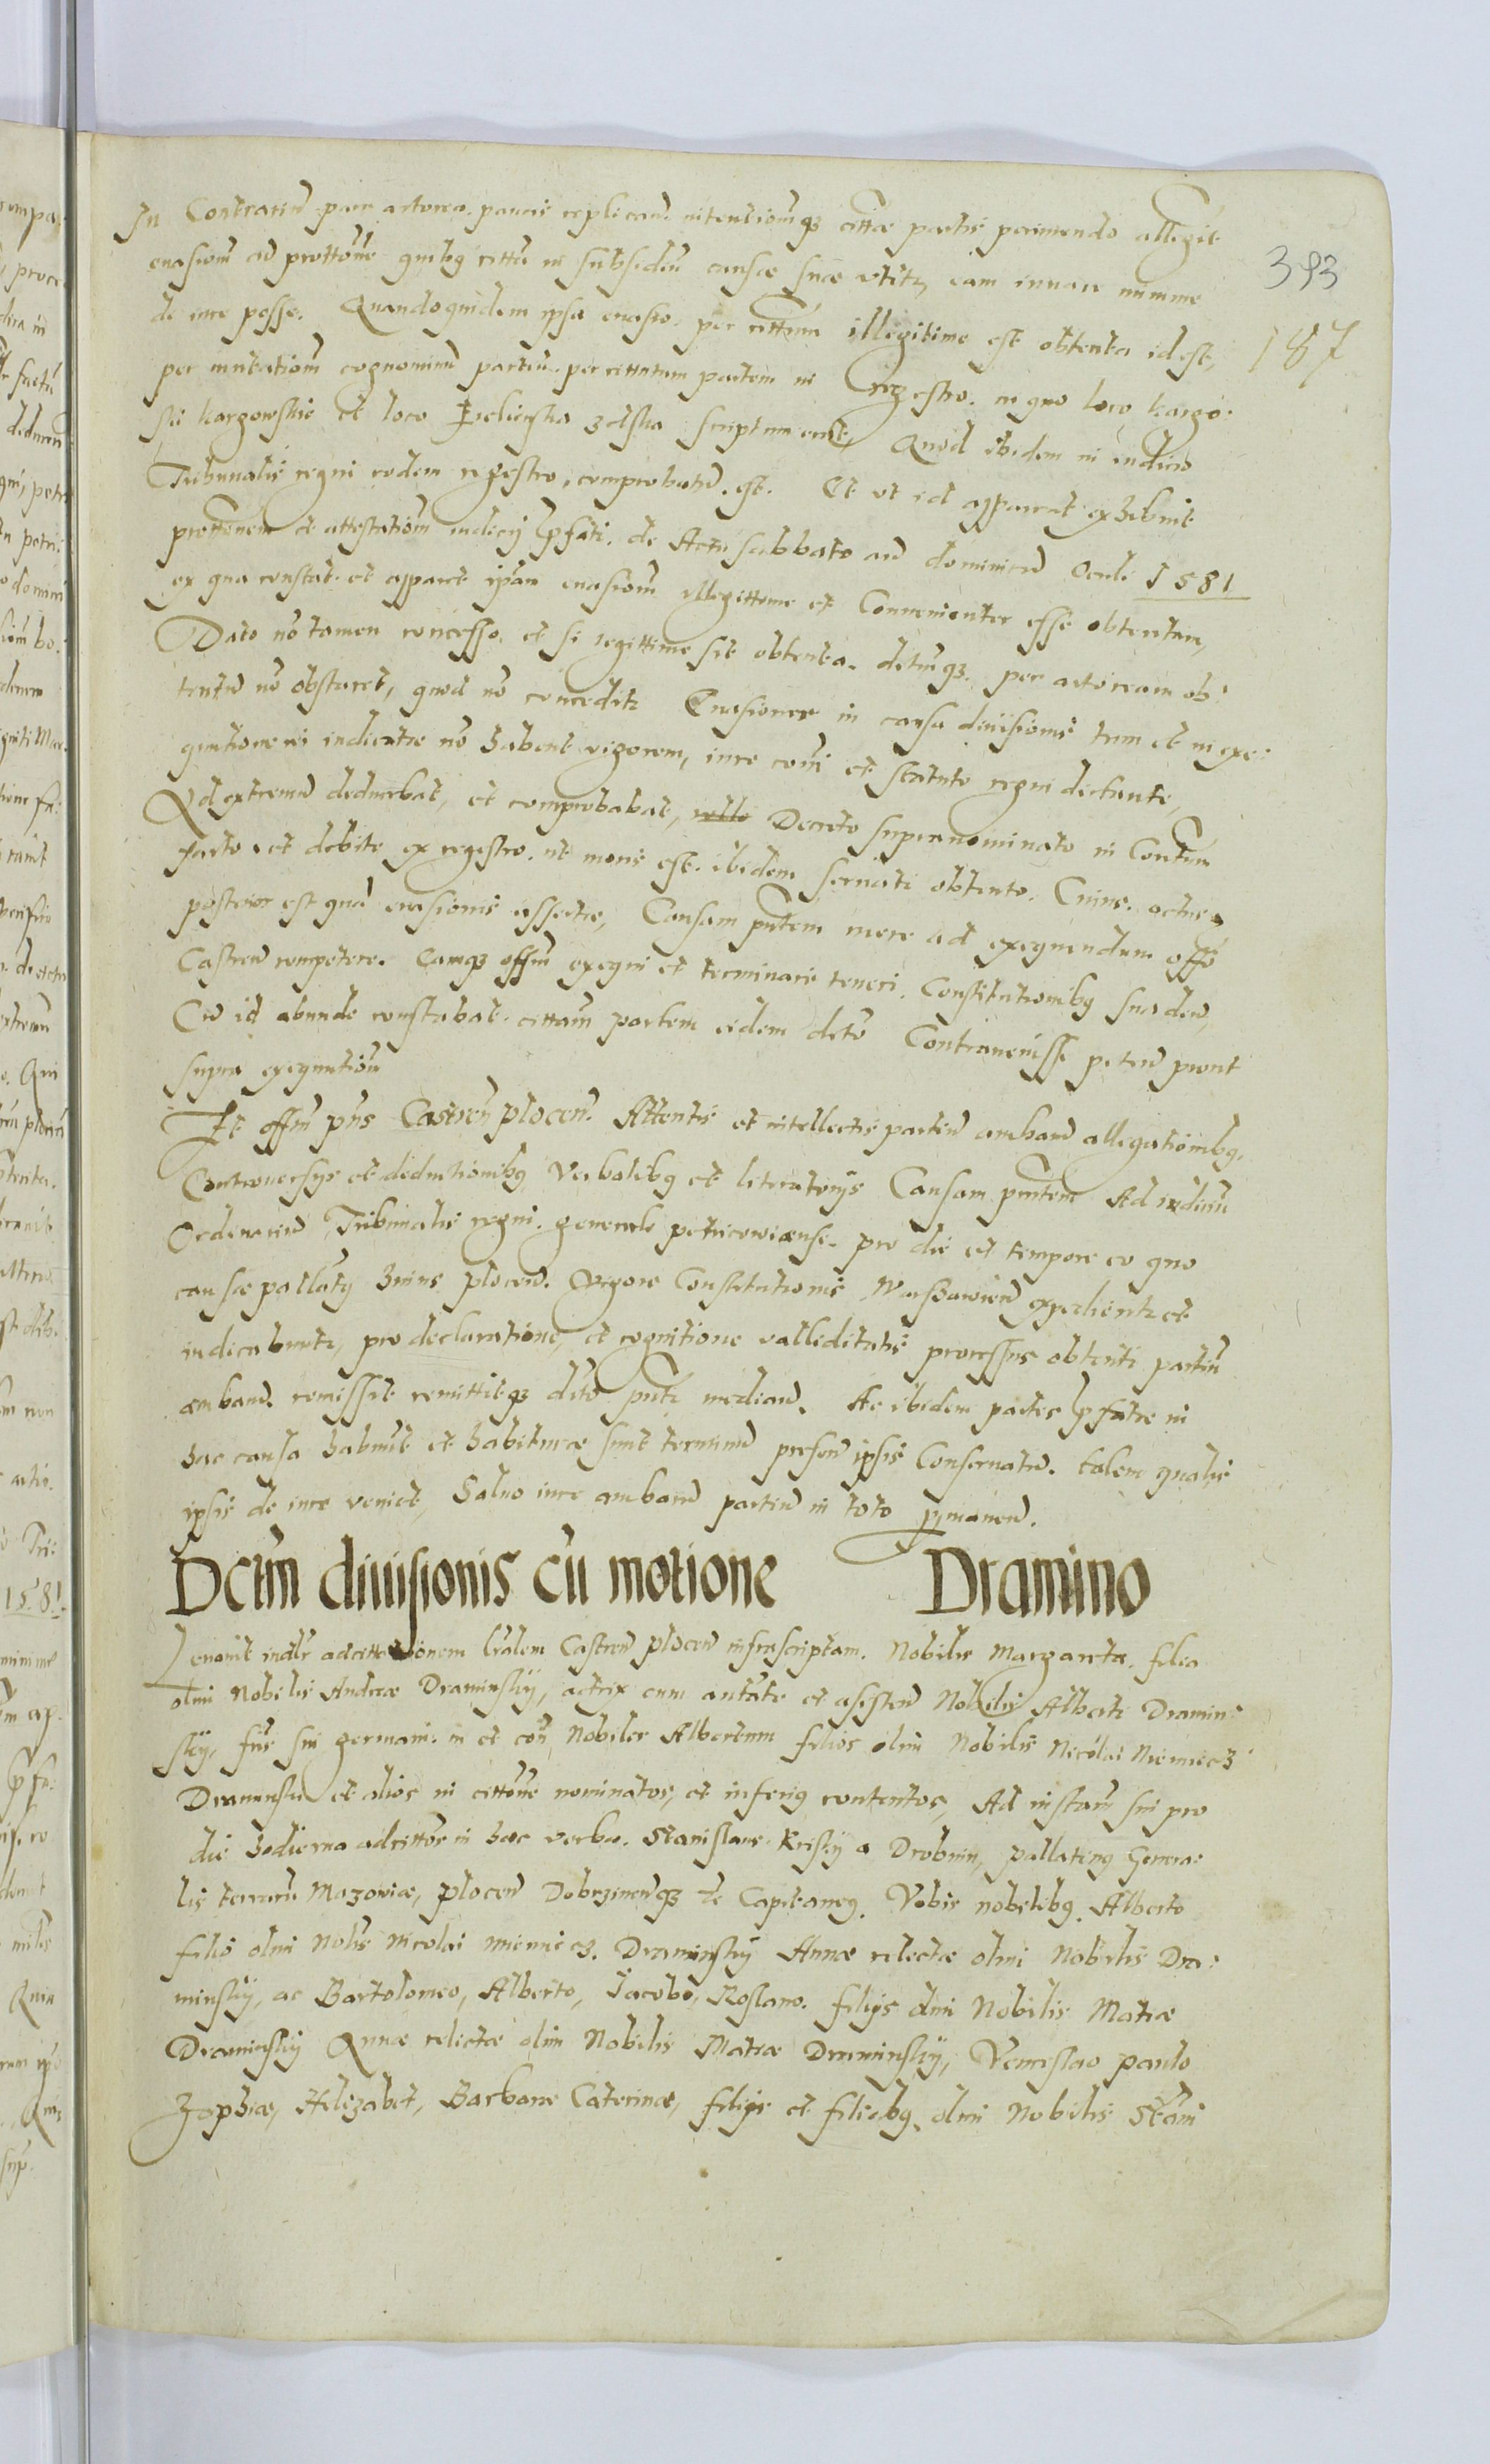 In Contrariu pars actorea paucis replicans intentiomq3 cittae partis perimendo allegit
393
euasiom ad prottone quibq citta in subsidiu causae suae utitr, eam iuuare minime
de iure posse. Quandoquidem ipsa euasio per cittum illegitime est obtenta id est,
187
per mutatiom cognominu partiu per cittatam partem in regestro. in quo loco kargo:
ski kargowskie et loco scriptum erat, Quod ibidem in iudicio
Tribunalis regni eodem regestro comprobatu est. Et ut id appareat exhibuit
prottonem et attestatiom iudicij pfati. de Actu sabbato an dominica Oculi 1581
ex qua constat et apparet ipam euasiom illegittime et Conuenienter esse obtentam,
Dato no tamen concesso, et si legittime sit obtenta. detuq3 per actoream ob:
tentu no obstaret, quod no conceditr Euasiones in causa diuisionis tum et in exe:
qutione rei iudicatae no habent vigorem, iure comi et statuto regni dictante,
Ad extremu deducebat, et comprobabat, Decreto supranominato in Contum
facto. et debite ex regestro. ut moris est. ibidem seruati obtento. Cuius. actus
posterior est qua euasionis assertae, Causam pntem mere ad exequendum offo
Castren competere. eamq3 offm exequi et terminare teneri. Constitutionibq suaden,
Cu id abunde constabat. cittam partem eidem deto Contrauenisse peten prout
supra exequutiom
Et offm pns Castren plocen. Attentis et intellectis partiu ambaru allegationibq,
Controuersijs et deductionibq verbalibq et literatorijs Causam pntem Ad iudiciu
Ordinariu Tribunalis regni generale petricouiense. pro die et tempore eo quo
causae pallatq huius plocen. vigore Constitutionis Warszauien expedientr et
iudicabuntr, pro declaratione, et cognitione valliditatis processus obtenti partiu
ambaru remissit remittitq3 deto pnti median. Ac ibidem partes pfatae in
hac causa habuit et habiturae sunt terminu presen ipsis Conseruatu. talem qualis
ipsis de iure veniet, Saluo iure ambaru partiu in toto pmanen.
Dctm diuisionis cu motione Dramino
Venit indlr ad citttionem lralem Castren plocen infrascriptam. Nobilis Margareta. filia
olim Nobilis Andreae Draminskij, actrix cum autate et asisten Nobilis Alberti Dramin:
skij, fris sui germani. in et con Nobiles Albertum filios olim Nobilis Nicolai Niemiecz
Draminski et alios in cittone nominatos, et inferiq contentos, Ad instam sui pro
die hodierna ad cittos in haec verba. Stanislaus Kriskij a Drobnin, pallatinq Genera:
lis terraru Mazoviae, plocen Dobrzinenq3 te Capitaneq. Vobis nobilibq, Alberto
filio olim nobis Nicolai niemiecz. Draminskij Annae relictae olim Nobilis Dra:
minskij, ac Bartolomeo, Alberto, Jacobo, Roslano. filijs olim Nobilis Matiae
Draminskij Annae relictae olim Nobilis Matiae Draminskij, Venceslao paulo
Zophiae, Helizabet, Barbarae Caterinae, filijs et filiabq olim Nobilis Stani